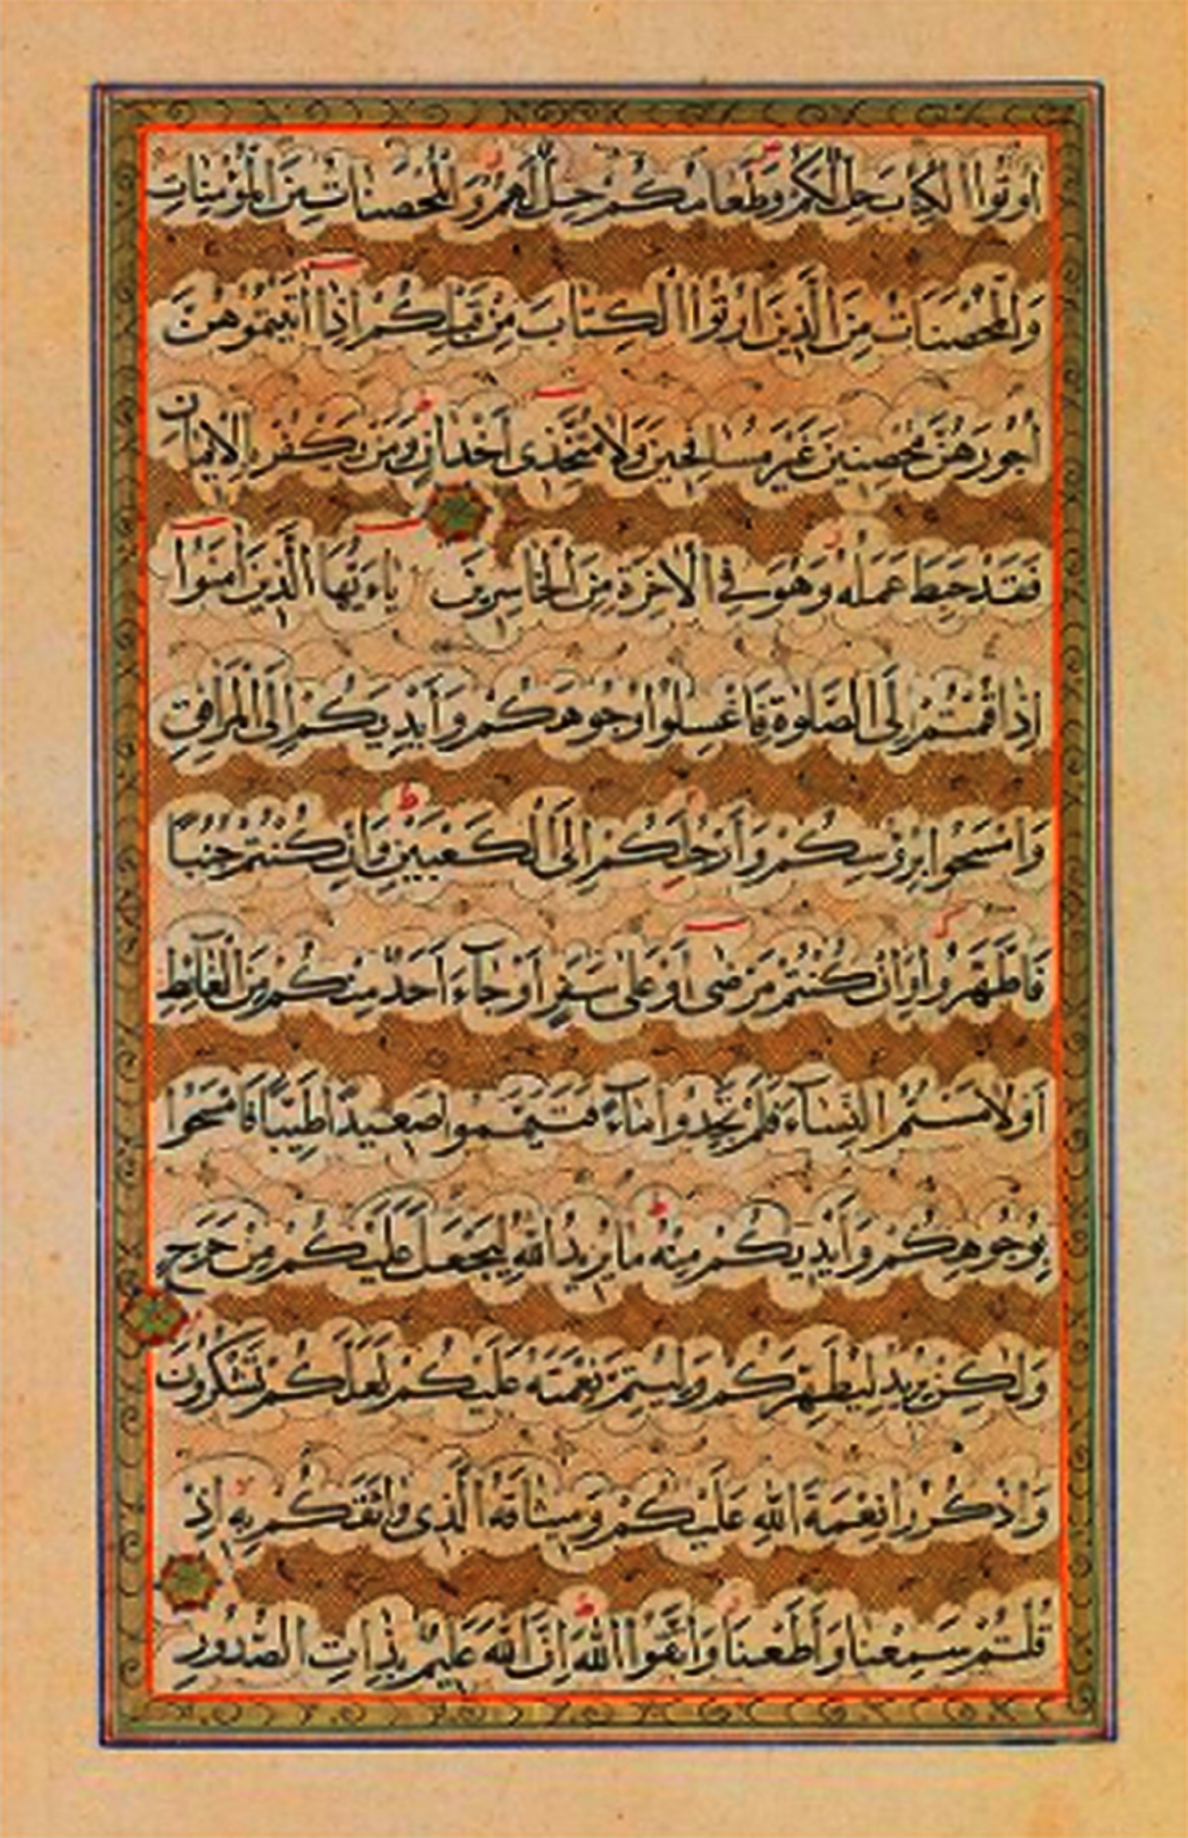 اُوتُوا الْكِتَابَ حِلٌّ لَكُمْ وَطَعَامُكُمْ حِلٌّ لَهُمْ وَالْمُحْصَنَاتُ مِنَ الْمُؤْمِنَاتِ
وَالْمُحْصَنَاتُ مِنَ الَّذِينَ اُوتُوا الْكِتَابَ مِنْ قَبْلِكُمْ اِذَا اٰتَيْتُمُوهُنَّ
اُجُورَهُنَّ مُحْصِنِينَ غَيْرَ مُسَافِحِينَ وَلَا مُتَّخِذِى اَخْدَانٍ وَمَنْ يَكْفُرْ بِالْاِيمَانِ
فَقَدْ حَبِطَ عَمَلُهُ وَهُوَ فِى الْاٰخِرَةِ مِنَ الْخَاسِرِينَ يَاءَيُّهَا الَّذِينَ اٰمَنُوا
اِذَا قُمْتُمْ اِلَى الصَّلٰوةِ فَاغْسِلُوا وُجُوهَكُمْ وَاَيْدِيَكُمْ اِلَى الْمَرَافِقِ
وَامْسَحُوا بِرُؤُسِكُمْ وَاَرْجُلَكُمْ اِلَى الْكَعْبَيْنِ وَاِنْ كُنْتُمْ جُنُبًا
فَاطَّهَّرُوا وَاِنْ كُنْتُمْ مَرْضٰى اَوْ عَلٰى سَفَرٍ اَوْ جَآءَ اَحَدٌ مِنْكُمْ مِنَ الْغَآئِطِ
اَوْ لَامَسْتُمُ النِّسَآءَ فَلَمْ تَجِدُوا مَآءً فَتَيَمَّمُوا صَعِيدًا طَيِّبًا فَامْسَحُوا
بِوُجُوهِكُمْ وَاَيْدِيكُمْ مِنْهُ مَا يُرِيدُ اللّٰهُ لِيَجْعَلَ عَلَيْكُمْ مِنْ حَرَجٍ
وَلٰكِنْ يُرِيدُ لِيُطَهِّرَكُمْ وَلِيُتِمَّ نِعْمَتَهُ عَلَيْكُمْ لَعَلَّكُمْ تَشْكُرُونَ
وَاذْكُرُوا نِعْمَةَ اللّٰهِ عَلَيْكُمْ وَمِيثَاقَهُ الَّذِى وَاثَقَكُمْ بِهِ اِذْ
قُلْتُمْ سَمِعْنَا وَاَطَعْنَا وَاتَّقُوا اللّٰهَ اِنَّ اللّٰهَ عَلِيمٌ بِذَاتِ الصُّدُورِ